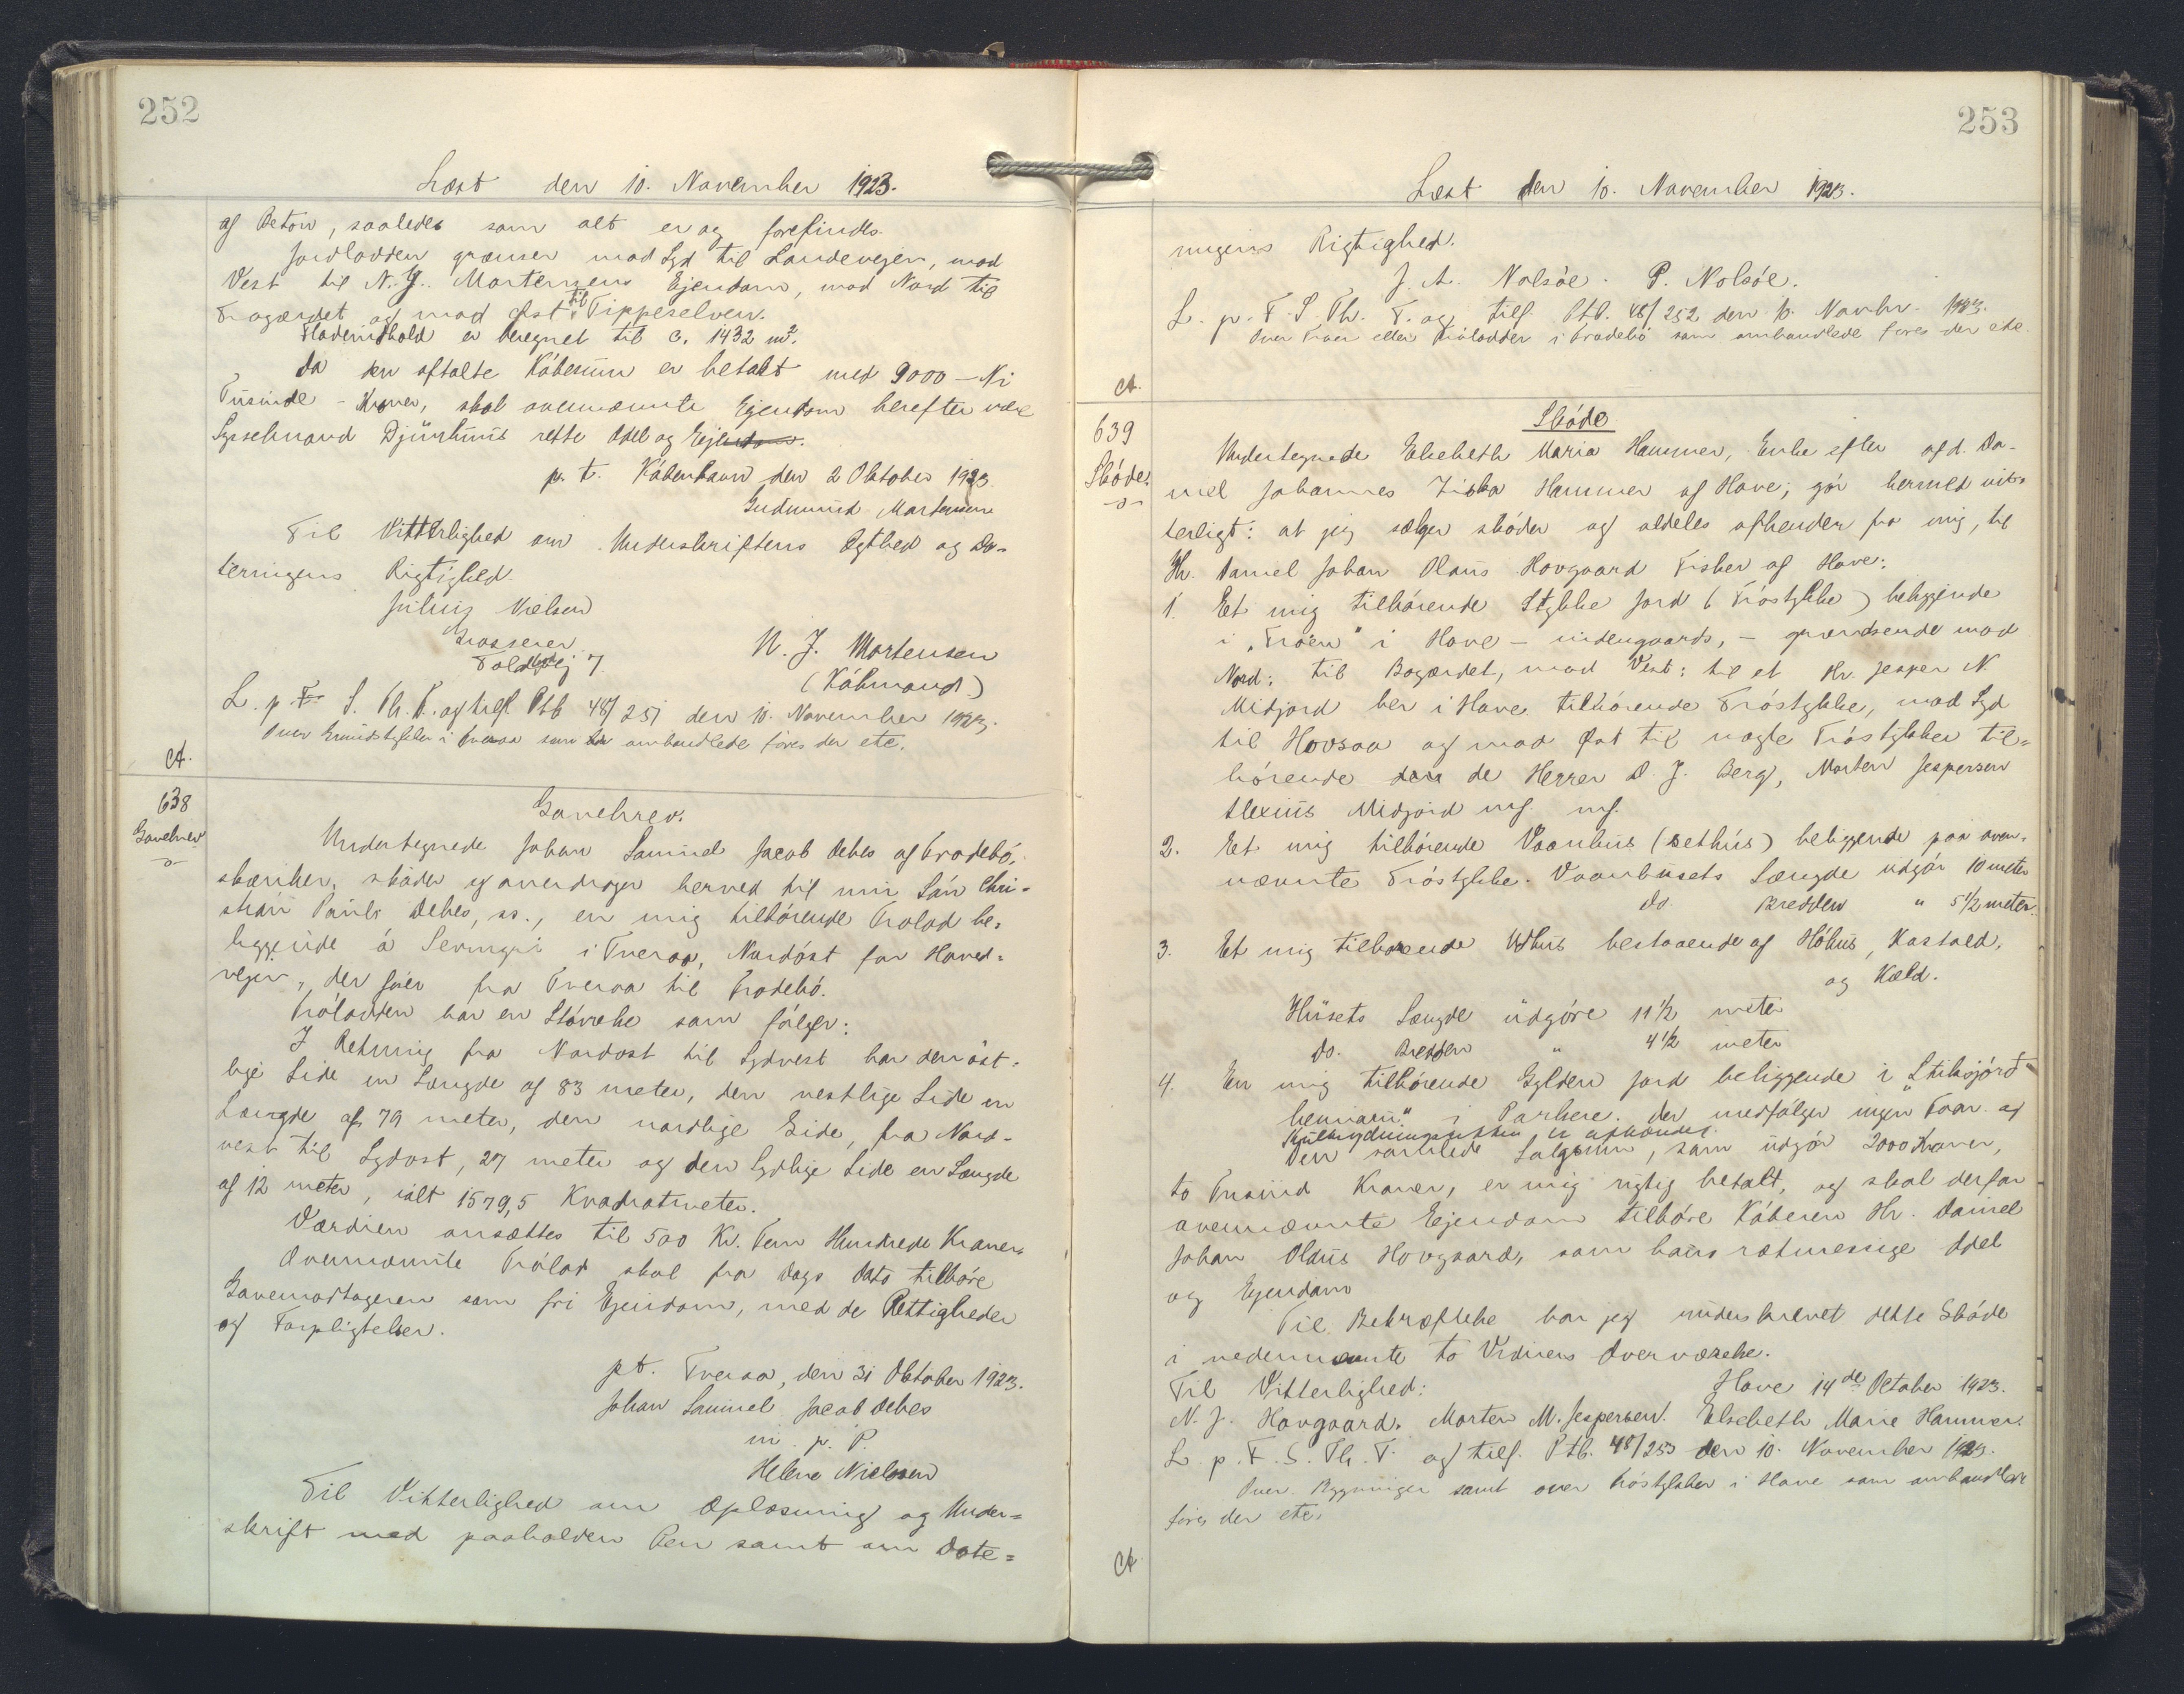 252
Læst den 10. November 1923.
af Beton, saaledes som alt er og forefindes.
Jordlodden grænser mod Syd til Landevejen, mod
Vest til N. J. Mortensens Ejendom, mod Nord til
Bøgærdet og mod Øst til Tippeselven.
Fladeindhold er beregnet til c. 1432 m².
Da den aftalte Købesum er betalt med 9000 – Ni
Tusinde – Kroner, skal ovennævnte Ejendom herefter være
Sysselmand Djurhuus rette Odel og Ejendom.
p. t. København den 2 Oktober 1923.
Gudmund Mortensen
Til Vitterlighed om Underskriftens Ægthed og Da-
teringens Rigtighed.
Julius Nielsen
Grosserer
7.
N. J. Mortensen
(Købmand)
L. p. F. S. Th. T. og tilf. Ptb 48/251 den 10. November 1923.
Over Grundstykker i Tveraa som omhandlede føres der etc.
A.
638
Gavebrev
Gavebrev.
Undertegnede Johan Samuel Jacob Debes af Frodebö,
skænker, skøder og overdrager herved til min Søn Chri-
stian Pauli Debes, ss., en mig tilhørende Trølod be-
liggende á Sevingi i Tveraa, Nordöst for Hoved-
vejen, der fører fra Tveraa til Frodebö.
Trølodden har en Størrelse som følger:
I Retning fra Nordost til Sydvest har den öst-
lige Side en Længde af 83 meter, den vestlige Side en
Længde af 79 meter, den nordlige Side, fra Nord-
vest til Sydost, 27 meter og den Sydlige Side en Længde
af 12 meter, ialt 1579,5 Kvadratmeter.
Værdien ansættes til 500 Kr. Fem Hundrede Kroner.
Ovennævnte Trølod skal fra Dags Dato tilhøre
Gavemodtageren som fri Ejendom, med de Rettigheder
og Forpligtelser.
pt. Tveraa, den 31 Oktober 1923.
Johan Samuel Jacob Debes
m. p. P.
Helene Nielsen
Til Vitterlighed om Oplæsning og Under-
skrift med paaholden Pen samt om Date-
253
Læst den 10. November 1923.
ringens Rigtighed.
J. A. Nolsøe. P. Nolsøe.
L. p. F. S. Th. T. og tilf. Ptb. 48/252 den 10. Novbr. 1923.
Over Trøer eller Trølodder i Frodebö som omhandlede føres der etc.
A.
639
Skøde.
Skøde
Undertegnede Elsebeth Maria Hammer, Enke efter afd. Da-
niel Johannes Ziska Hammer af Hove; gör herved vit-
terligt: at jeg sælger skøder og aldeles afhender fra mig, til
Hr. Daniel Johan Olaus Hovgaard Fisker af Hove:
1. Et mig tilhørende Stykke Jord (Trøstykke) beliggende
i „Trøen“ i Hove – indengaards, – grændsende mod
Nord: til Bøgærdet, mod Vest: til et Hr. Jesper N
Midjord her i Hove tilhørende Trøstykke, mod Syd
til Hovsaa og mod Øst til nogle Trøstykker til-
hørende de Herrer D. J. Berg, Morten Jespersen
Alexius Midjord mf. mf.
2. Et mig tilhørende Vaanhus (Sethús) beliggende paa oven-
nævnte Trøstykke. Vaanhusets Længde udgør 10 meter
do. Bredden " 5½ meter.
3. Et mig tilhørende Udhus bestaaende af Höhus, Kostald,
og Kæld.
Husets Længde udgøre 11½ meter
do. Bredden " 4½ meter
4. En mig tilhørende Gylden Jord beliggende i „Stiksjørd-
hennari“ i Porkere. der medfølger ingen Faar og
Kulbrydningsretten er afhændet.
Den samlede Salgsum, som udgør 2000 Kroner,
to Tusind Kroner, er mig rigtig betalt, og skal derfor
ovennævnte Ejendom tilhøre Køberen Hr. Daniel
Johan Olaus Hovgaard, som hans rætmessige Odel
og Ejendom
Til Bekræftelse har jeg underskrevet dette Skøde
i nedennævnte to Vidners Overværelse.
Til Vitterlighed: Hove 14de October 1923.
N. J. Hovgaard. Morten M. Jespersen. Elsebeth Marie Hammer.
L. p. F. S. Th. T. og tilf. Ptb. 48/253 den 10. November 1923.
Over Bygninger samt over Trøstykker i Hove som omhandlede
føres der etc.
A